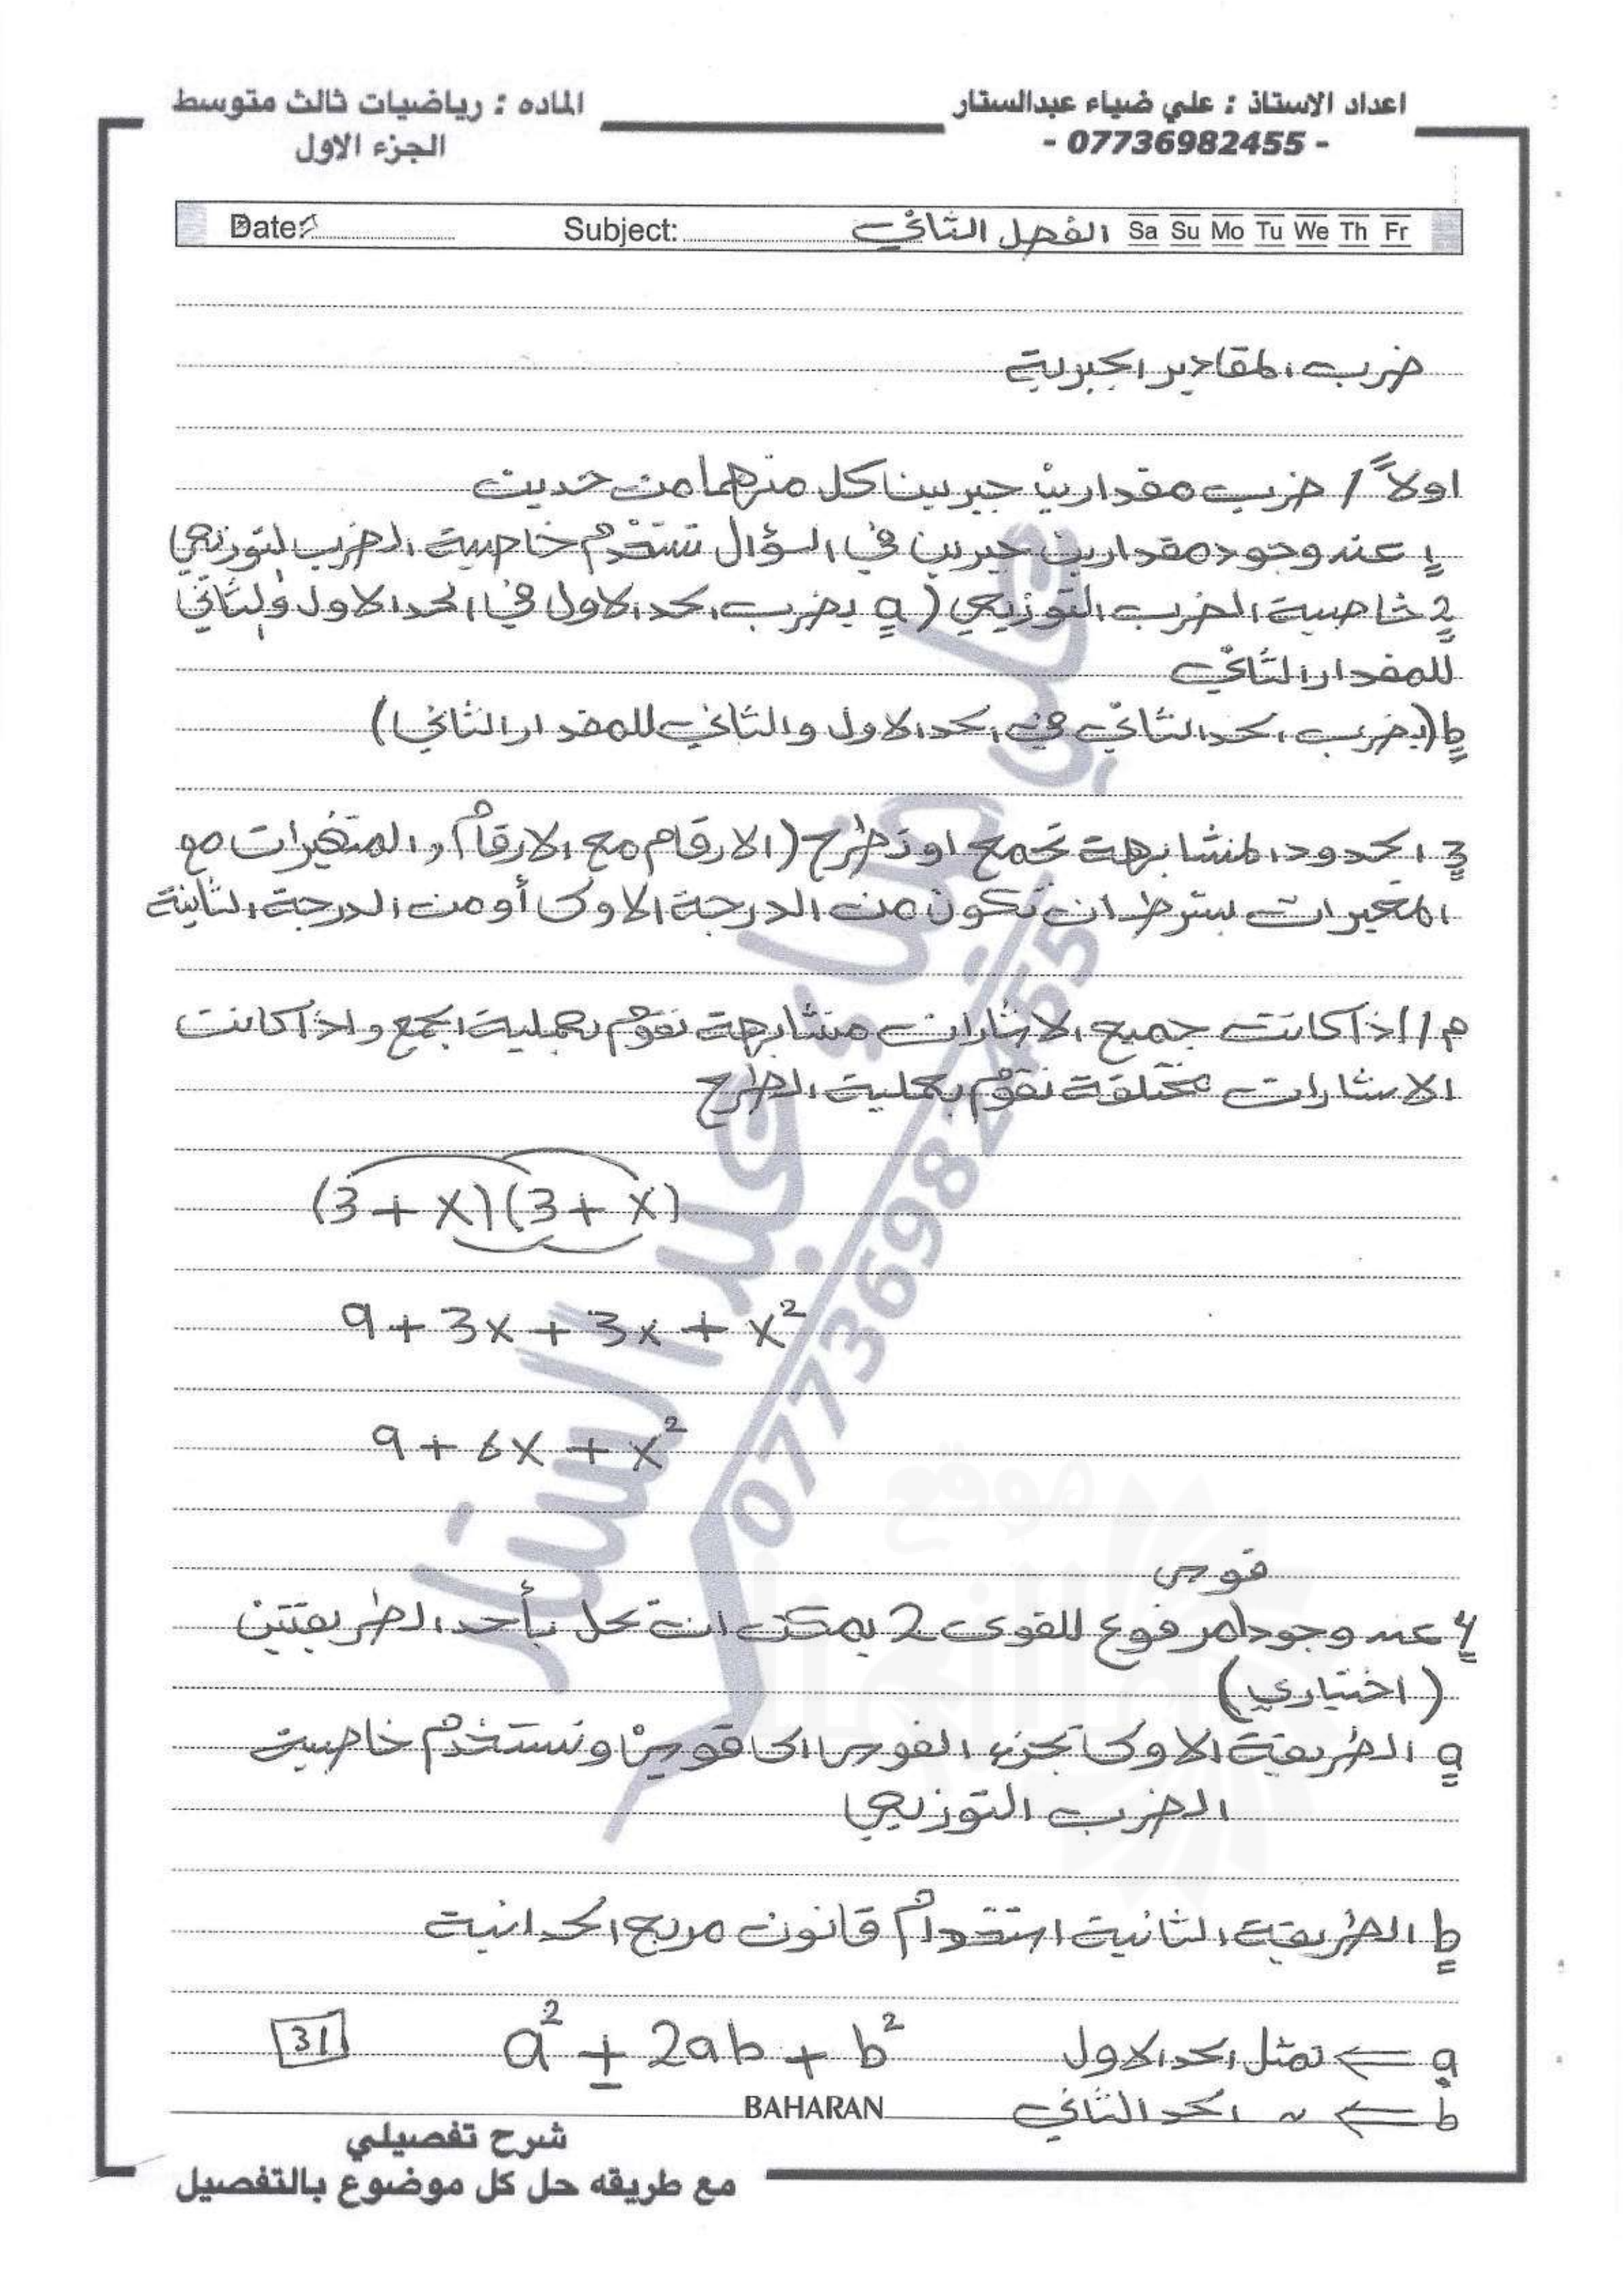 اعداد الاستاذ : علي ضياء عبدالستار
- 07736982455 -
الماده : رياضيات ثالث متوسط
الجزء الاول
Date: Subject: الفصل الثاني Sa Su Mo Tu We Th Fr
ضرب المقادير الجبرية
اولاً / ضرب مقدارين جبريين كل منهما من حدين
1 عند وجود مقدارين جبريين في السؤال نستخدم خاصية الضرب التوزيعي
2 خاصية الضرب التوزيعي (a يضرب الحد الاول في الحد الاول والثاني
للمقدار الثاني
b (يضرب الحد الثاني في الحد الاول والثاني للمقدار الثاني)
3 الحدود المتشابهة تجمع او تطرح (الارقام مع الارقام والمتغيرات مع
المتغيرات بشرط ان تكون من الدرجة الاولى أو من الدرجة الثانية
م // اذا كانت جميع الاشارات متشابهة نقوم بعملية الجمع واذا كانت
الاشارات مختلفة نقوم بعملية الطرح
(3 + x)(3 + x)
9 + 3x + 3x + x²
9 + 6x + x²
قوس
4 عند وجود مرفوع للقوى 2 يمكن ان تحل بأحد الطريقتين
(اختياري)
a الطريقة الاولى تجزء القوس الى قوسين ونستخدم خاصية
الضرب التوزيعي
b الطريقة الثانية استخدام قانون مربع الحدانية
a ⇐ تمثل الحد الاول a² ± 2ab + b² 31
b ⇐ ~ الحد الثاني
BAHARAN
شرح تفصيلي
مع طريقه حل كل موضوع بالتفصيل
علي ضياء عبد الستار
07736982455
موقع